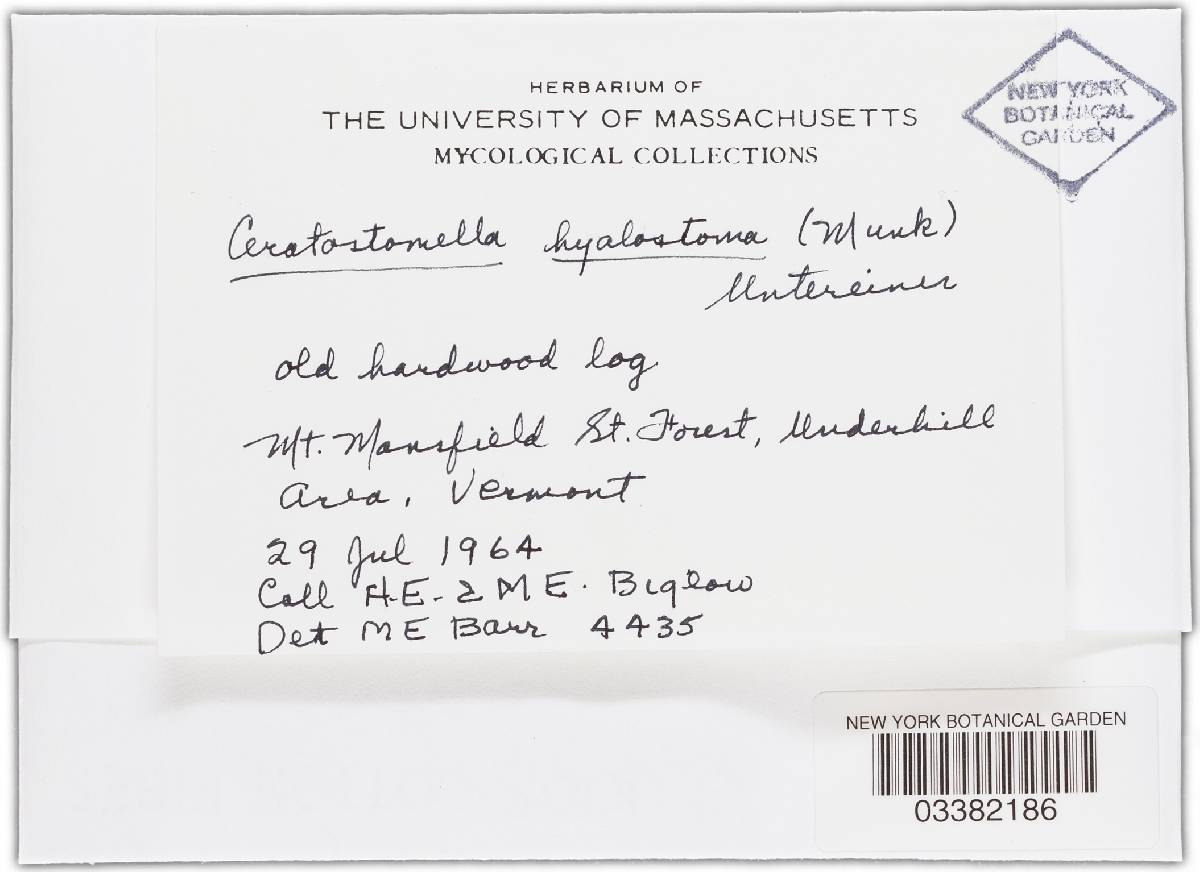 HERBARIUM OF
THE UNIVERSITY OF MASSACHUSETTS
MYCOLOGICAL COLLECTIONS
NEW YORK
BOTANICAL
GARDEN
Ceratostomella hyalostoma (Munk)
Untereiner
old hardwood log
Mt. Mansfield St. Forest, Underhill
Area, Vermont
29 Jul 1964
Coll H.E. & M E. Bigelow
Det M E Barr 4435
NEW YORK BOTANICAL GARDEN
03382186